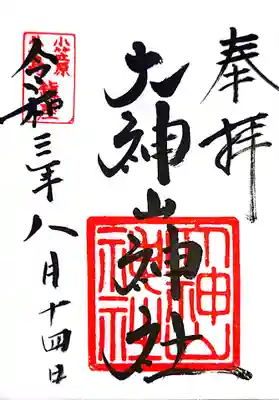 奉拝
大神山神社
令和三年八月十四日
小笠原
大神山
神社